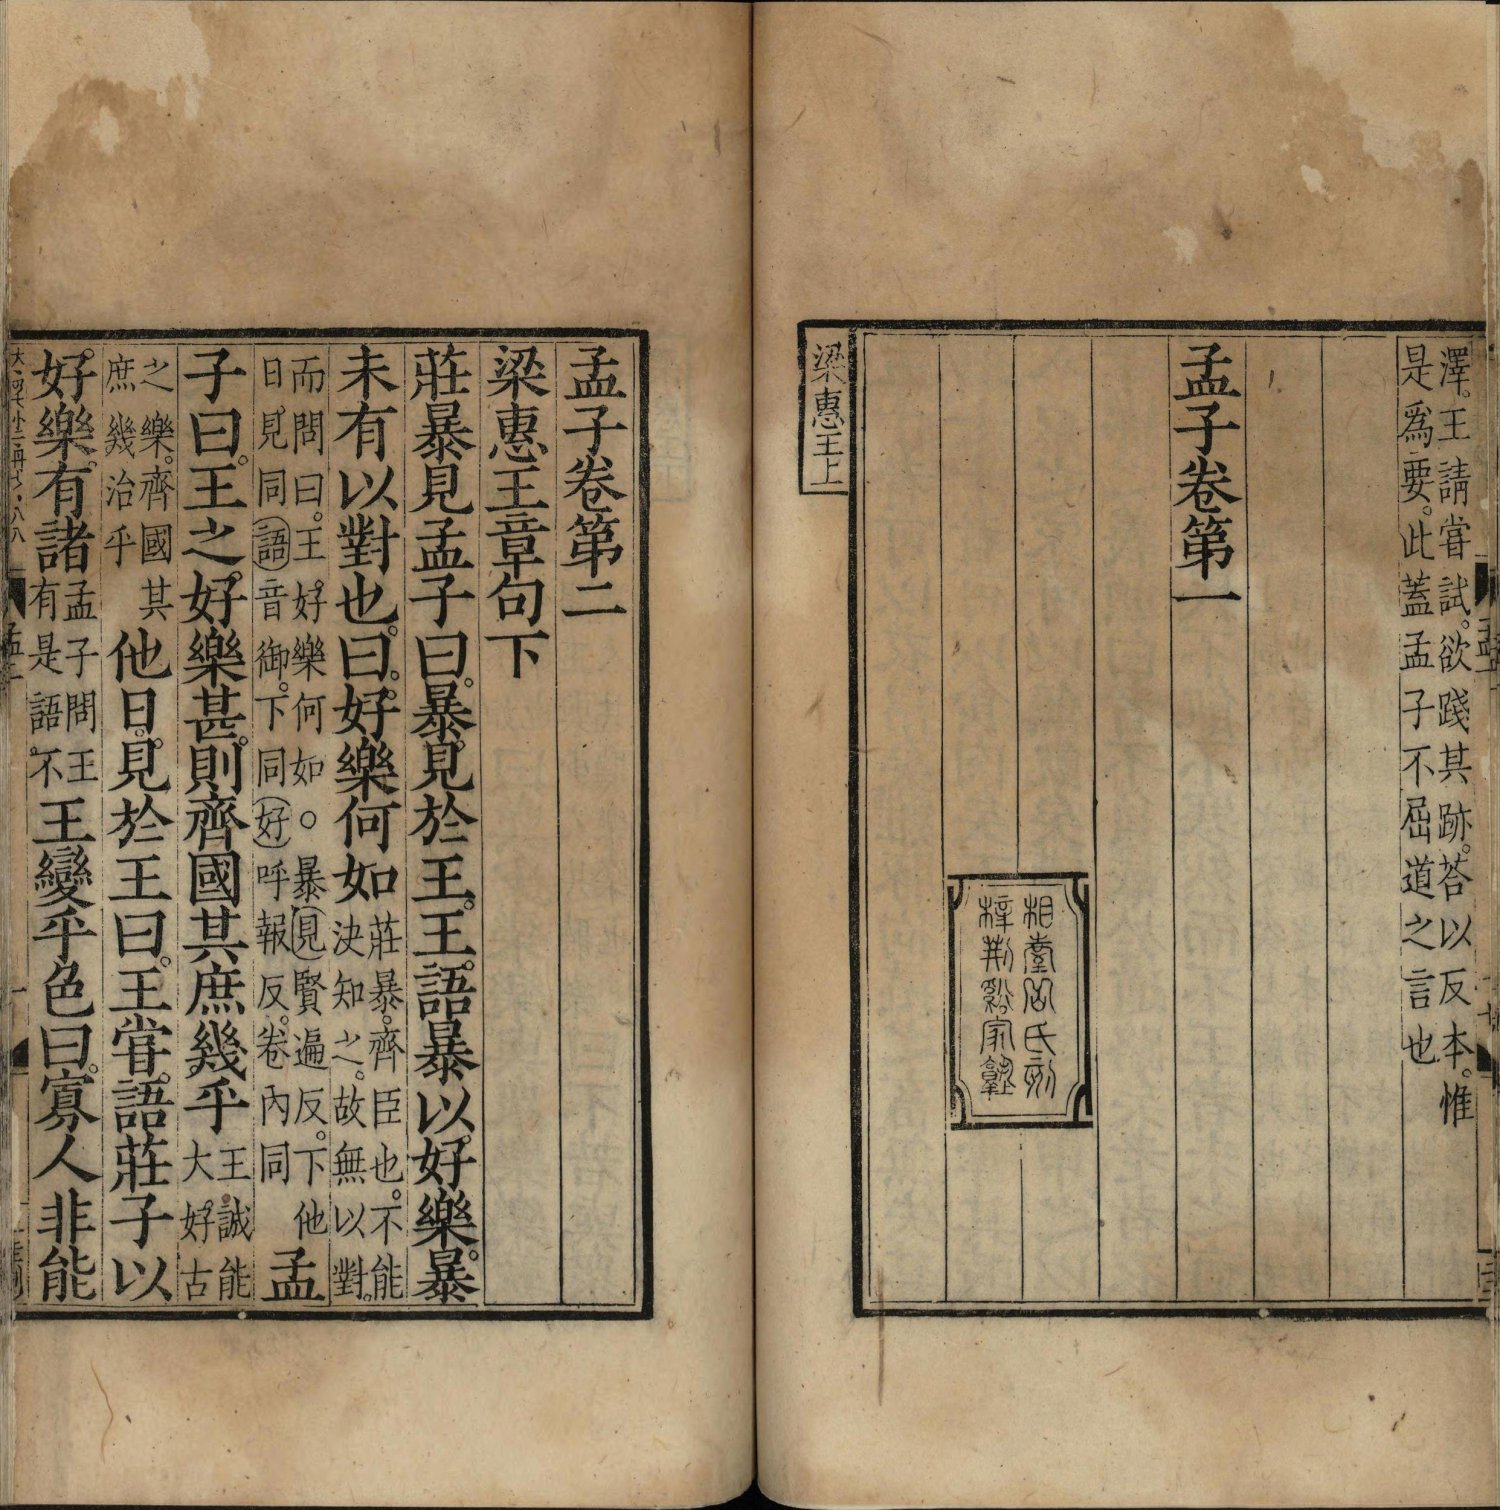 澤。王請嘗試。欲踐其跡。荅以反本。惟
是爲要。此蓋孟子不屈道之言也
孟子卷第一
相臺岳氏刻
梓荆谿家塾
梁惠王上
孟子卷第二
梁惠王章句下
莊暴見孟子曰。暴見於王。王語暴以好樂。暴
未有以對也。曰。好樂何如
莊暴。齊臣也。不能
決知之。故無以對。
而問曰。王好樂何如。○暴見賢遍反。下他
日見同語音御。下同好呼報反。卷內同
孟
子曰。王之好樂甚。則齊國其庶幾乎
王誠能
大好古
之樂。齊國其
庶幾治乎
他日。見於王曰。王嘗語莊子以
好樂。有諸
孟子問王
有是語不。
王變乎色曰。寡人非能